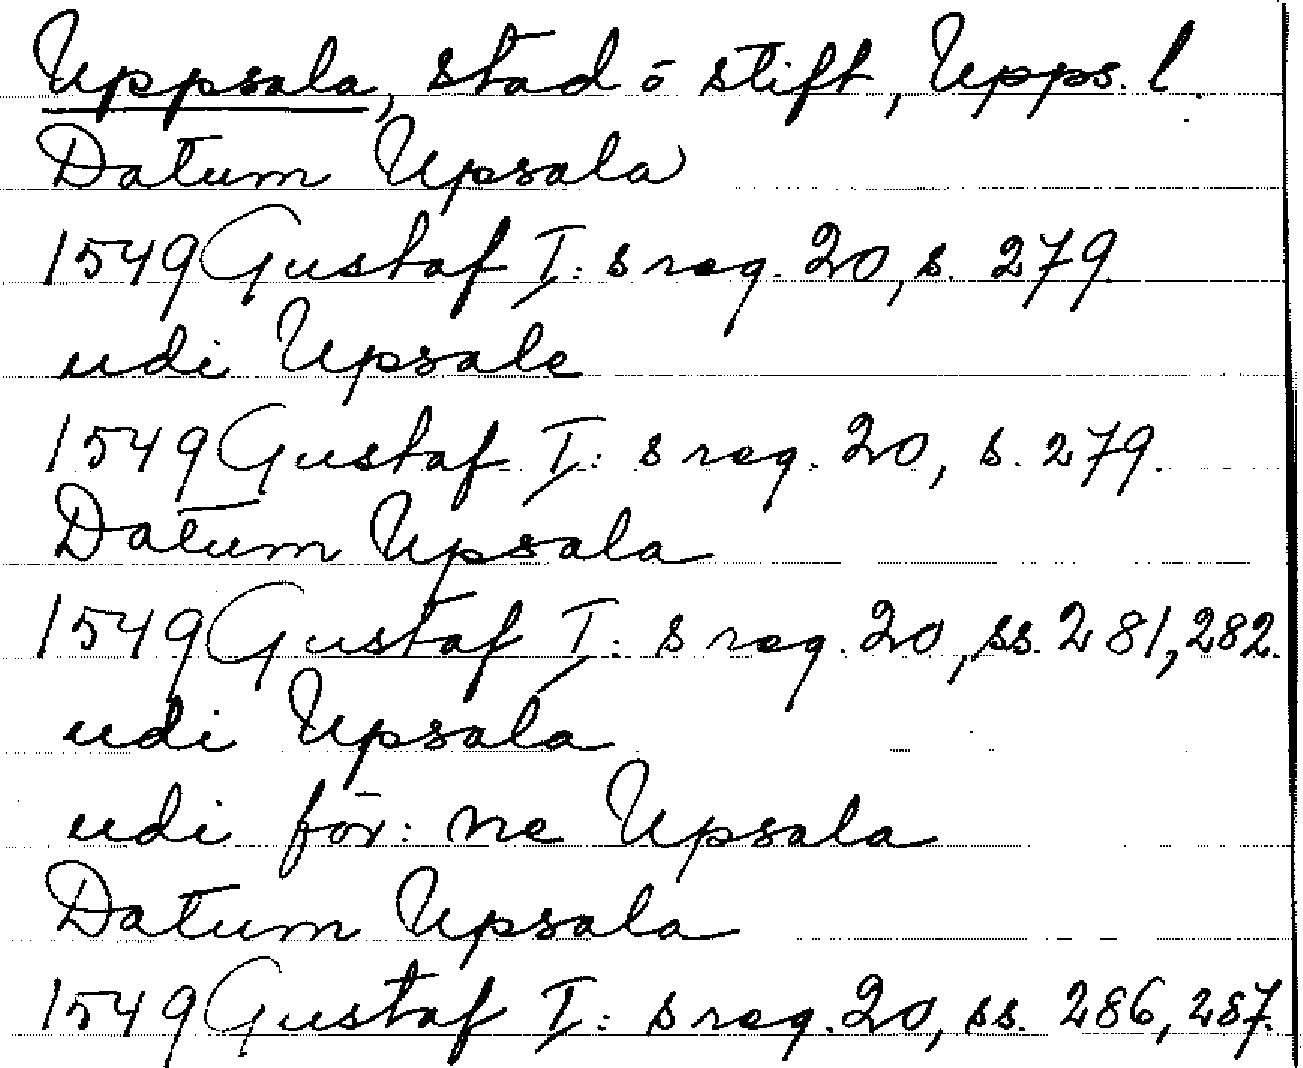 Uppsala, stad o stift, Upps. l.
Datum Upsala
1549 Gustaf I:s reg. 20, s. 279
udi Upsale
1549 Gustaf I:s reg. 20, s. 279.
Datum Upsala
1549 Gustaf I:s reg. 20, ss. 281, 282.
udi Upsala
udi för:ne Upsala
Datum Upsala
1549 Gustaf I:s reg. 20, ss. 286, 287.